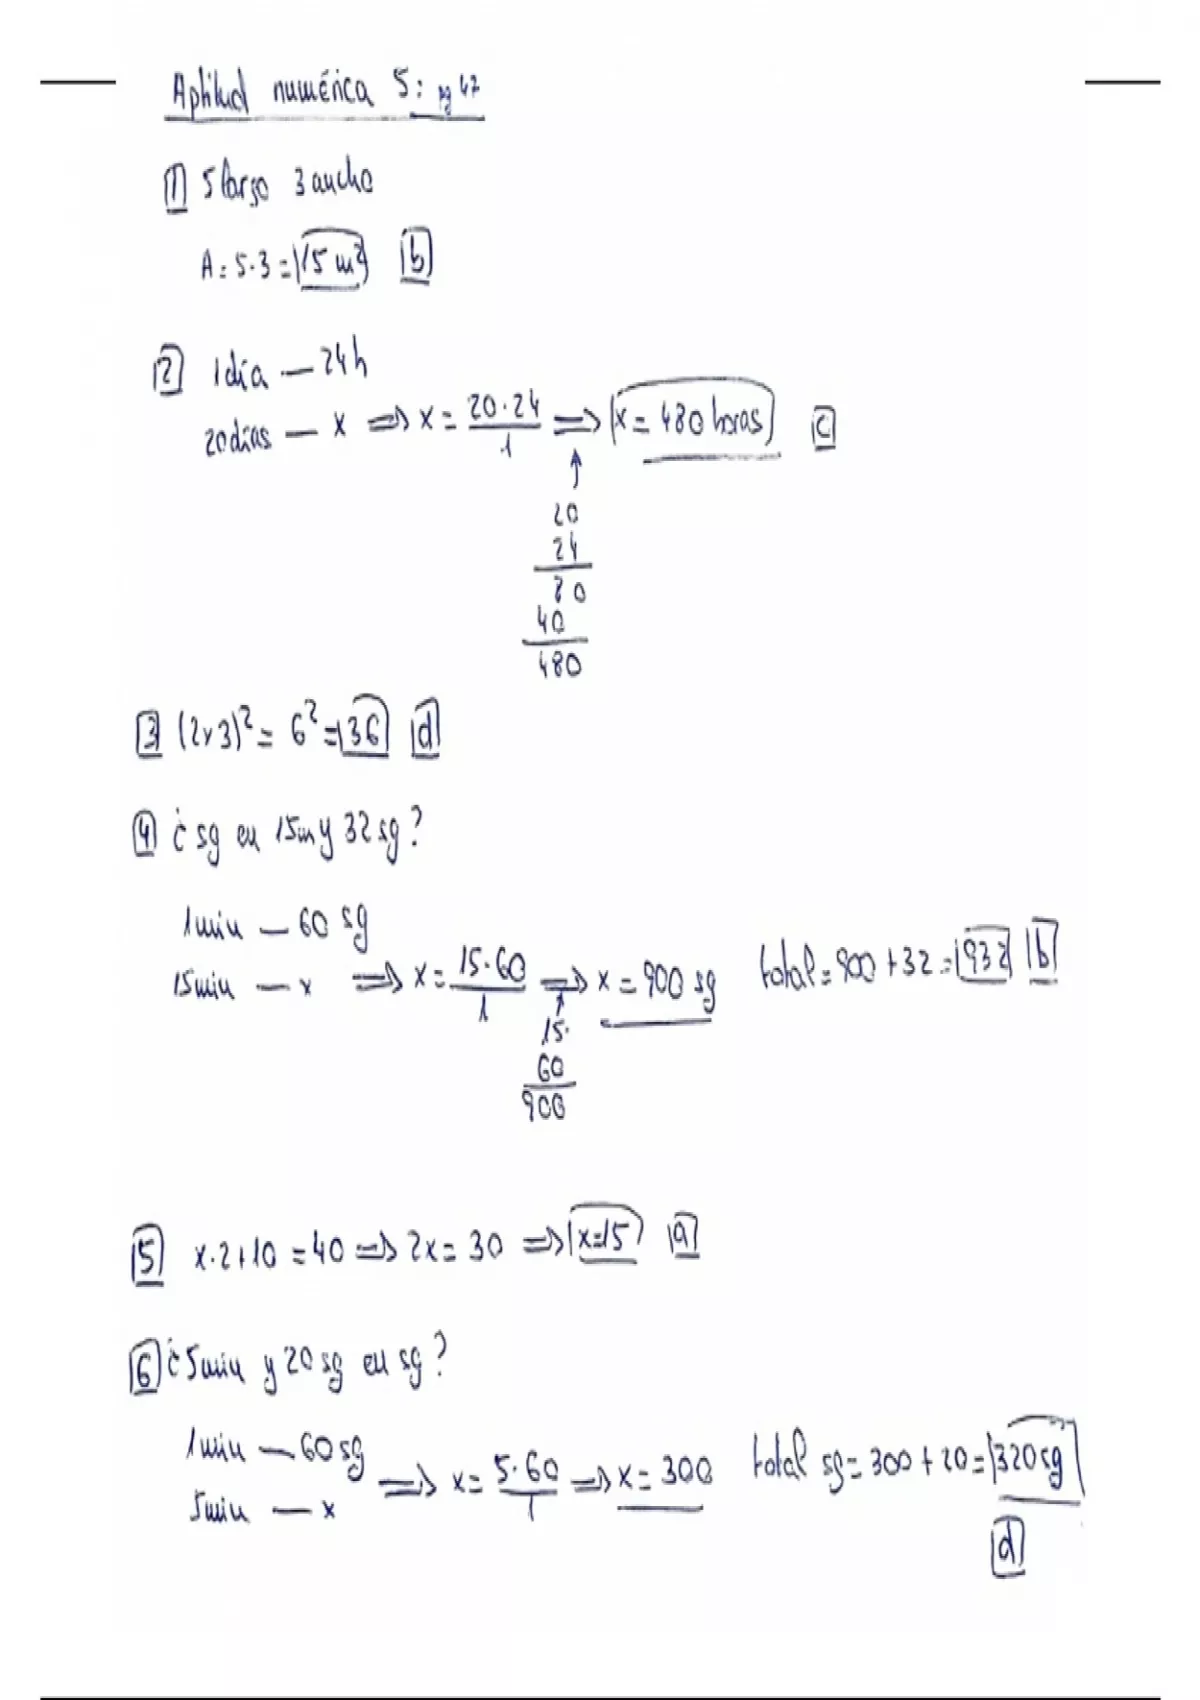 Aptitud numérica 5: pg 47
1 5 largo 3 ancho
A = 5·3 = 15 m² b
2 1 día — 24h
20 días — x => x = 20·24 / 1 => x = 480 horas c
↑
20
24
80
40
480
3 (2x3)² = 6² = 36 d
4 ¿ sg en 15m y 32 sg?
1 min — 60 sg
15 min — x => x = 15·60 / 1 => x = 900 sg total = 900 + 32 = 932 b
↑
15·
60
900
5 x·2+10 = 40 => 2x = 30 => x=15 a
6 ¿ 5 min y 20 sg en sg?
1 min — 60 sg
5 min — x => x = 5·60 / 1 => x = 300 total sg = 300 + 20 = 320 sg
d